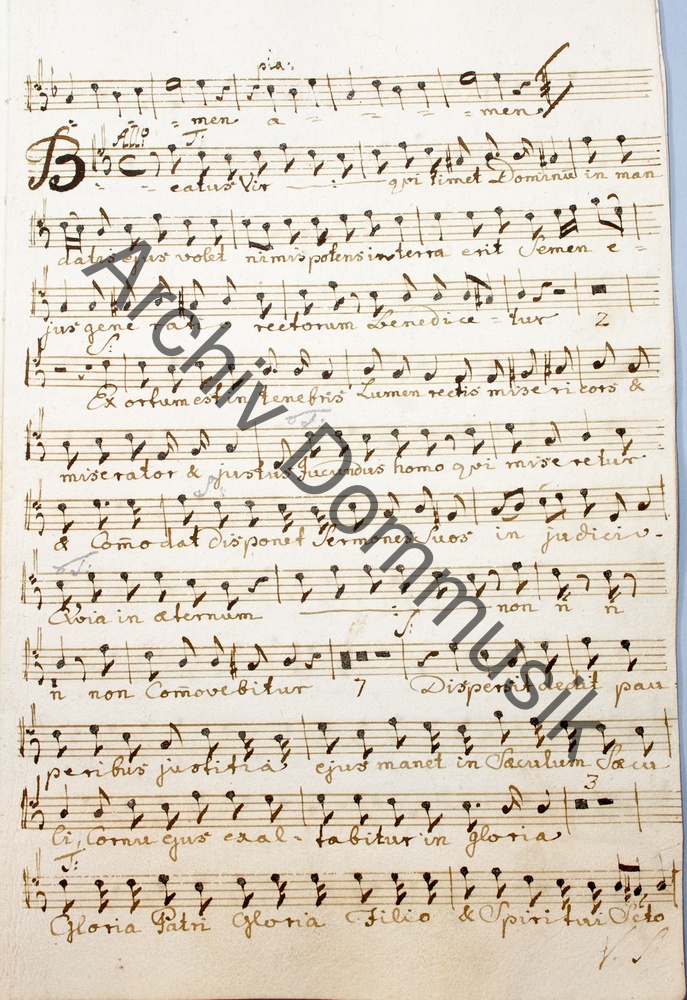 pia:
= men a - - - - men
All:o T:
Beatus Vir qvi timet Dominū in man
datis ejus volet nimis potens in terra erit Semen e =
jus gene rati o rectorum Benedice - tur 2
S:
Ex ortum est in tenebris Lumen rectis mise ri cors &
T:
miserator & justus Jucundus homo qvi mise retur
S:
& Com̄o dat disponet Sermones Suos in judicio.
T:
Qvia in æternum non n̄ n̄
S:
n̄ non Com̄ovebitur 7 Dispersit dedit pau
peribus justitia ejus manet in Sæculum Sæcu
li, Cornu ejus exal - tabitur in gloria 3
T:
Gloria Patri Gloria Filio & Spiritui Scto
V. S
Archiv Dommusik